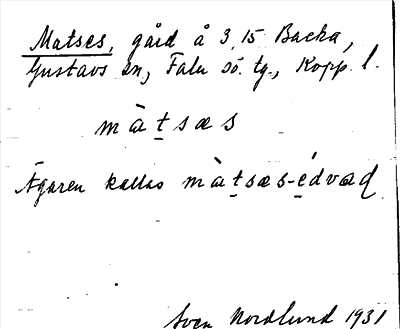 Matses, gård å 3,15 Backa,
Gustavs sn, Falu sö. tg., Kopp. l.
màt̠sæs
Ägaren kallas màt̠sæs-e̠dvad
Sven Nordlund 1931